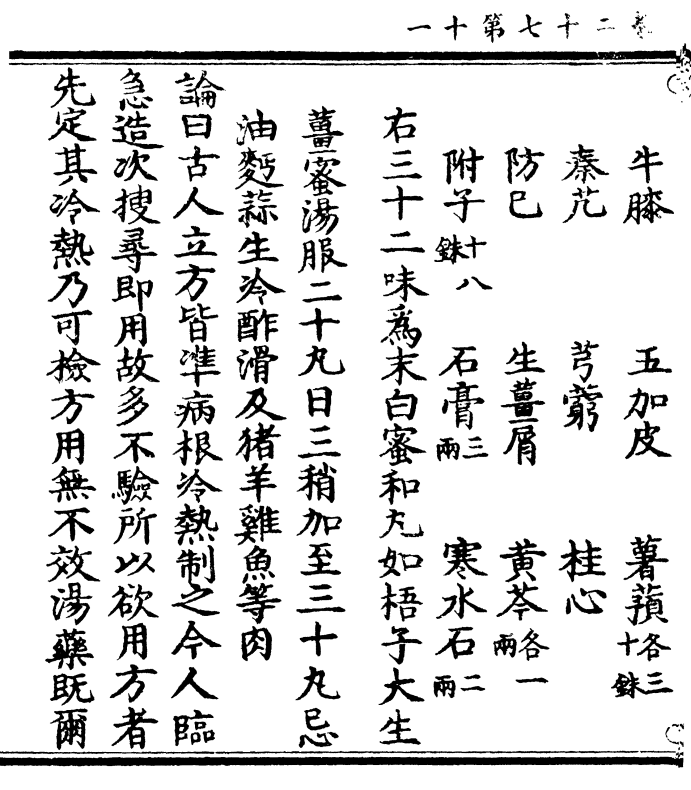 卷二十七第十一
牛膝 五加皮 薯蕷各三十銖
秦艽 芎藭 桂心
防巳 生薑屑 黄芩各一兩
附子十八銖 石膏三兩 寒水石二兩
右三十二味爲末白蜜和丸如梧子大生
薑蜜湯服二十丸日三稍加至三十丸忌
油麪蒜生冷酢滑及猪羊雞魚等肉
論曰古人立方皆準病根冷熱制之今人臨
急造次搜尋即用故多不驗所以欲用方者
先定其冷熱乃可檢方用無不效湯藥既爾